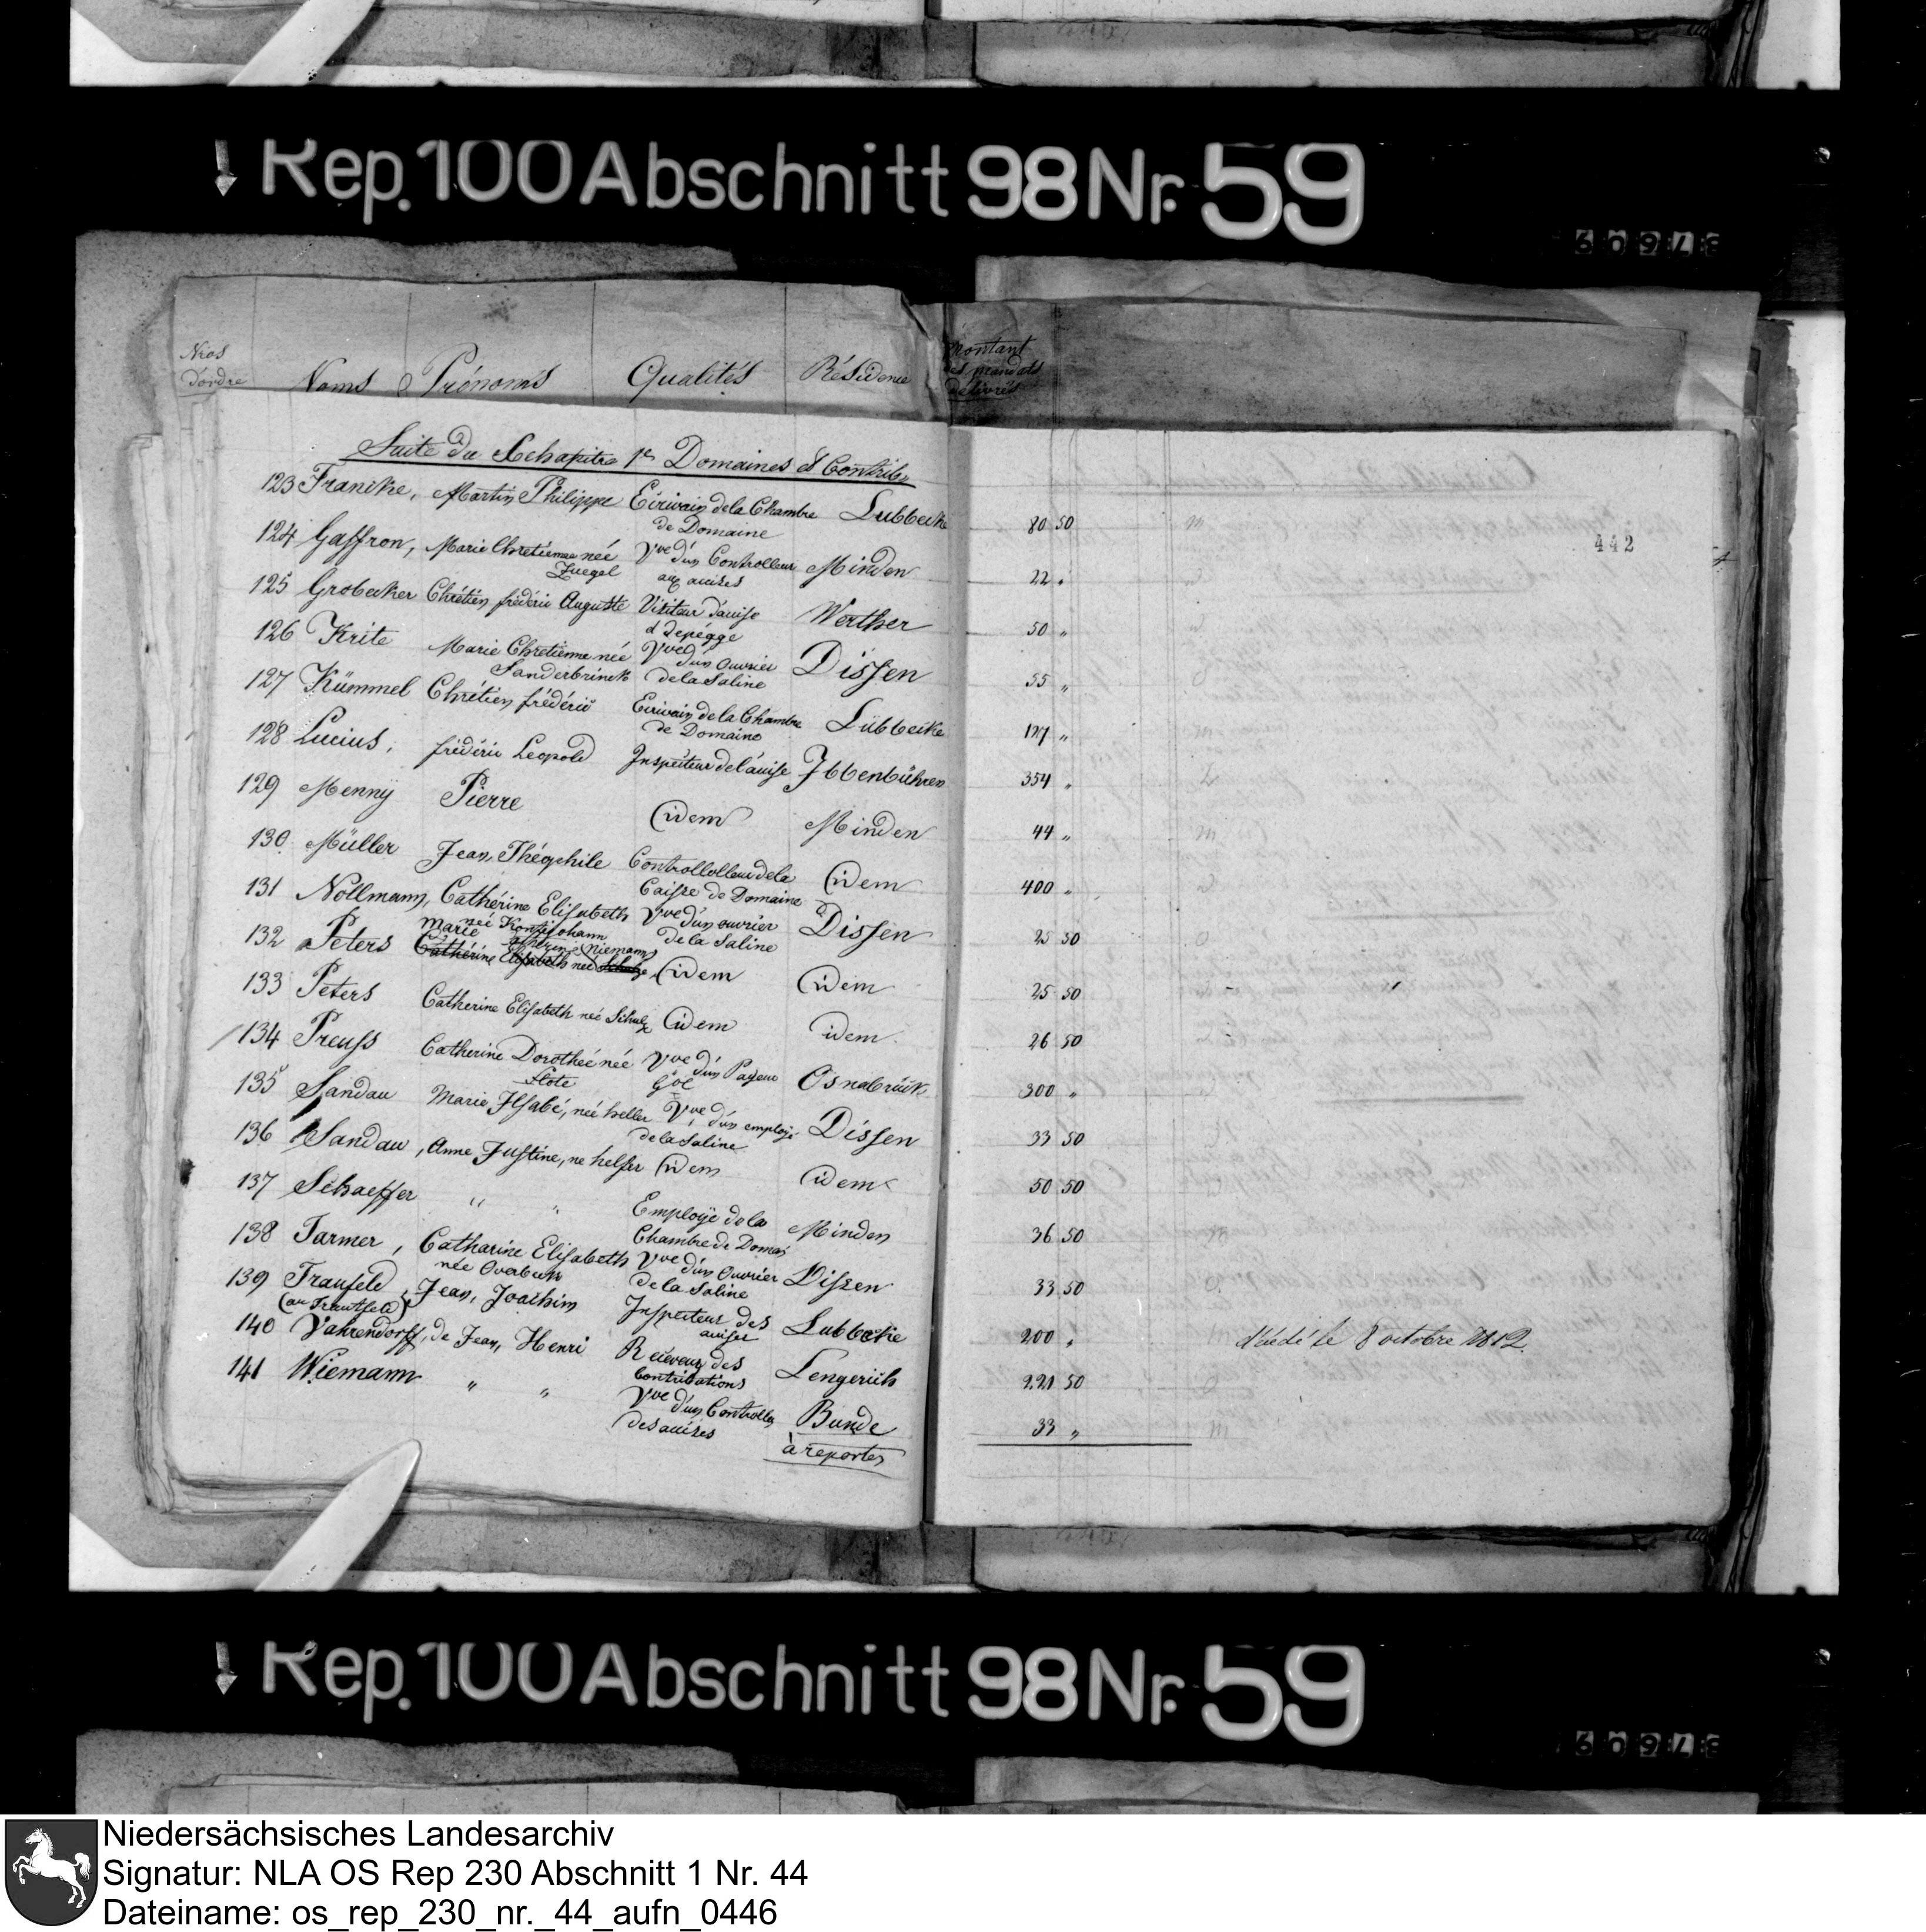 Rep. 100 Abschnitt 98 Nr. 59
37609
Nros d'ordre Noms & Prénoms Qualités Résidence Montant des mandats délivrés
Suite du Chapitre 1er Domaines & Contrib.
442
123 Francke, Martin Philippe Ecrivain de la Chambre Lubbecke 80 50
de Domaine
124 Gaffron, Marie Chretienne neé Vve d'un Controlleur Minden 22 "
Zuegel aux accises
125 Grobecker Chrétien frédéric Auguste Visiteur d'accise Werther 50 "
126 Krite Marie Chretienne neé Vve d'un Ouvrier Dissen 55 "
Sanderbrinck de la Saline
127 Kümmel Chrétien frédéric Ecrivain de la Chambre Lübbecke 127 "
de Domaine
128 Lucius, frédéric Leopold Inspecteur de l'accise Ibbenbühren 354 "
129 Menny Pierre idem Minden 44 "
130 Müller Jean Théophile Controllolleur de la idem 400 "
Caisse de Domaine
131 Nollmann, Catherine Elisabeth Vve d'un ouvrier Dissen 25 50
de la Saline
132 Peters Marie Niemann idem idem 25 50
Cathérine Elisabeth neé
133 Peters Catherine Elisabeth neé Schulz idem idem 26 50
134 Preuss Catherine Dorotheé neé Vve d'un Payeur Osnabrück 300 "
flote
135 Sandau Marie Ilsabé, neé heller Vve d'un employé Dissen 33 50
de la Saline
136 Sandau, Anne Justine, ne helser idem idem 50 50
137 Schaeffer " " Employé de la Minden 36 50
Chambre de Domai
138 Farmer, Catharine Elisabeth Vve d'un Ouvrier Dissen 33 50
née Overbeck de la Saline
139 Traufeld, Jean, Joachim Inspecteur des Lubbecke 200 " décédé le 8 octobre 1812.
(ou Trautfeld) accises
140 Vahrendorff, de Jean, Henri Receveur des Lengerich 221 50
Contributions
141 Wiemann " " Vve d'un Controlleu Bunde 33 "
des accises
à reporter
Rep. 100 Abschnitt 98 Nr. 59
37609
Niedersächsisches Landesarchiv
Signatur: NLA OS Rep 230 Abschnitt 1 Nr. 44
Dateiname: os_rep_230_nr._44_aufn_0446